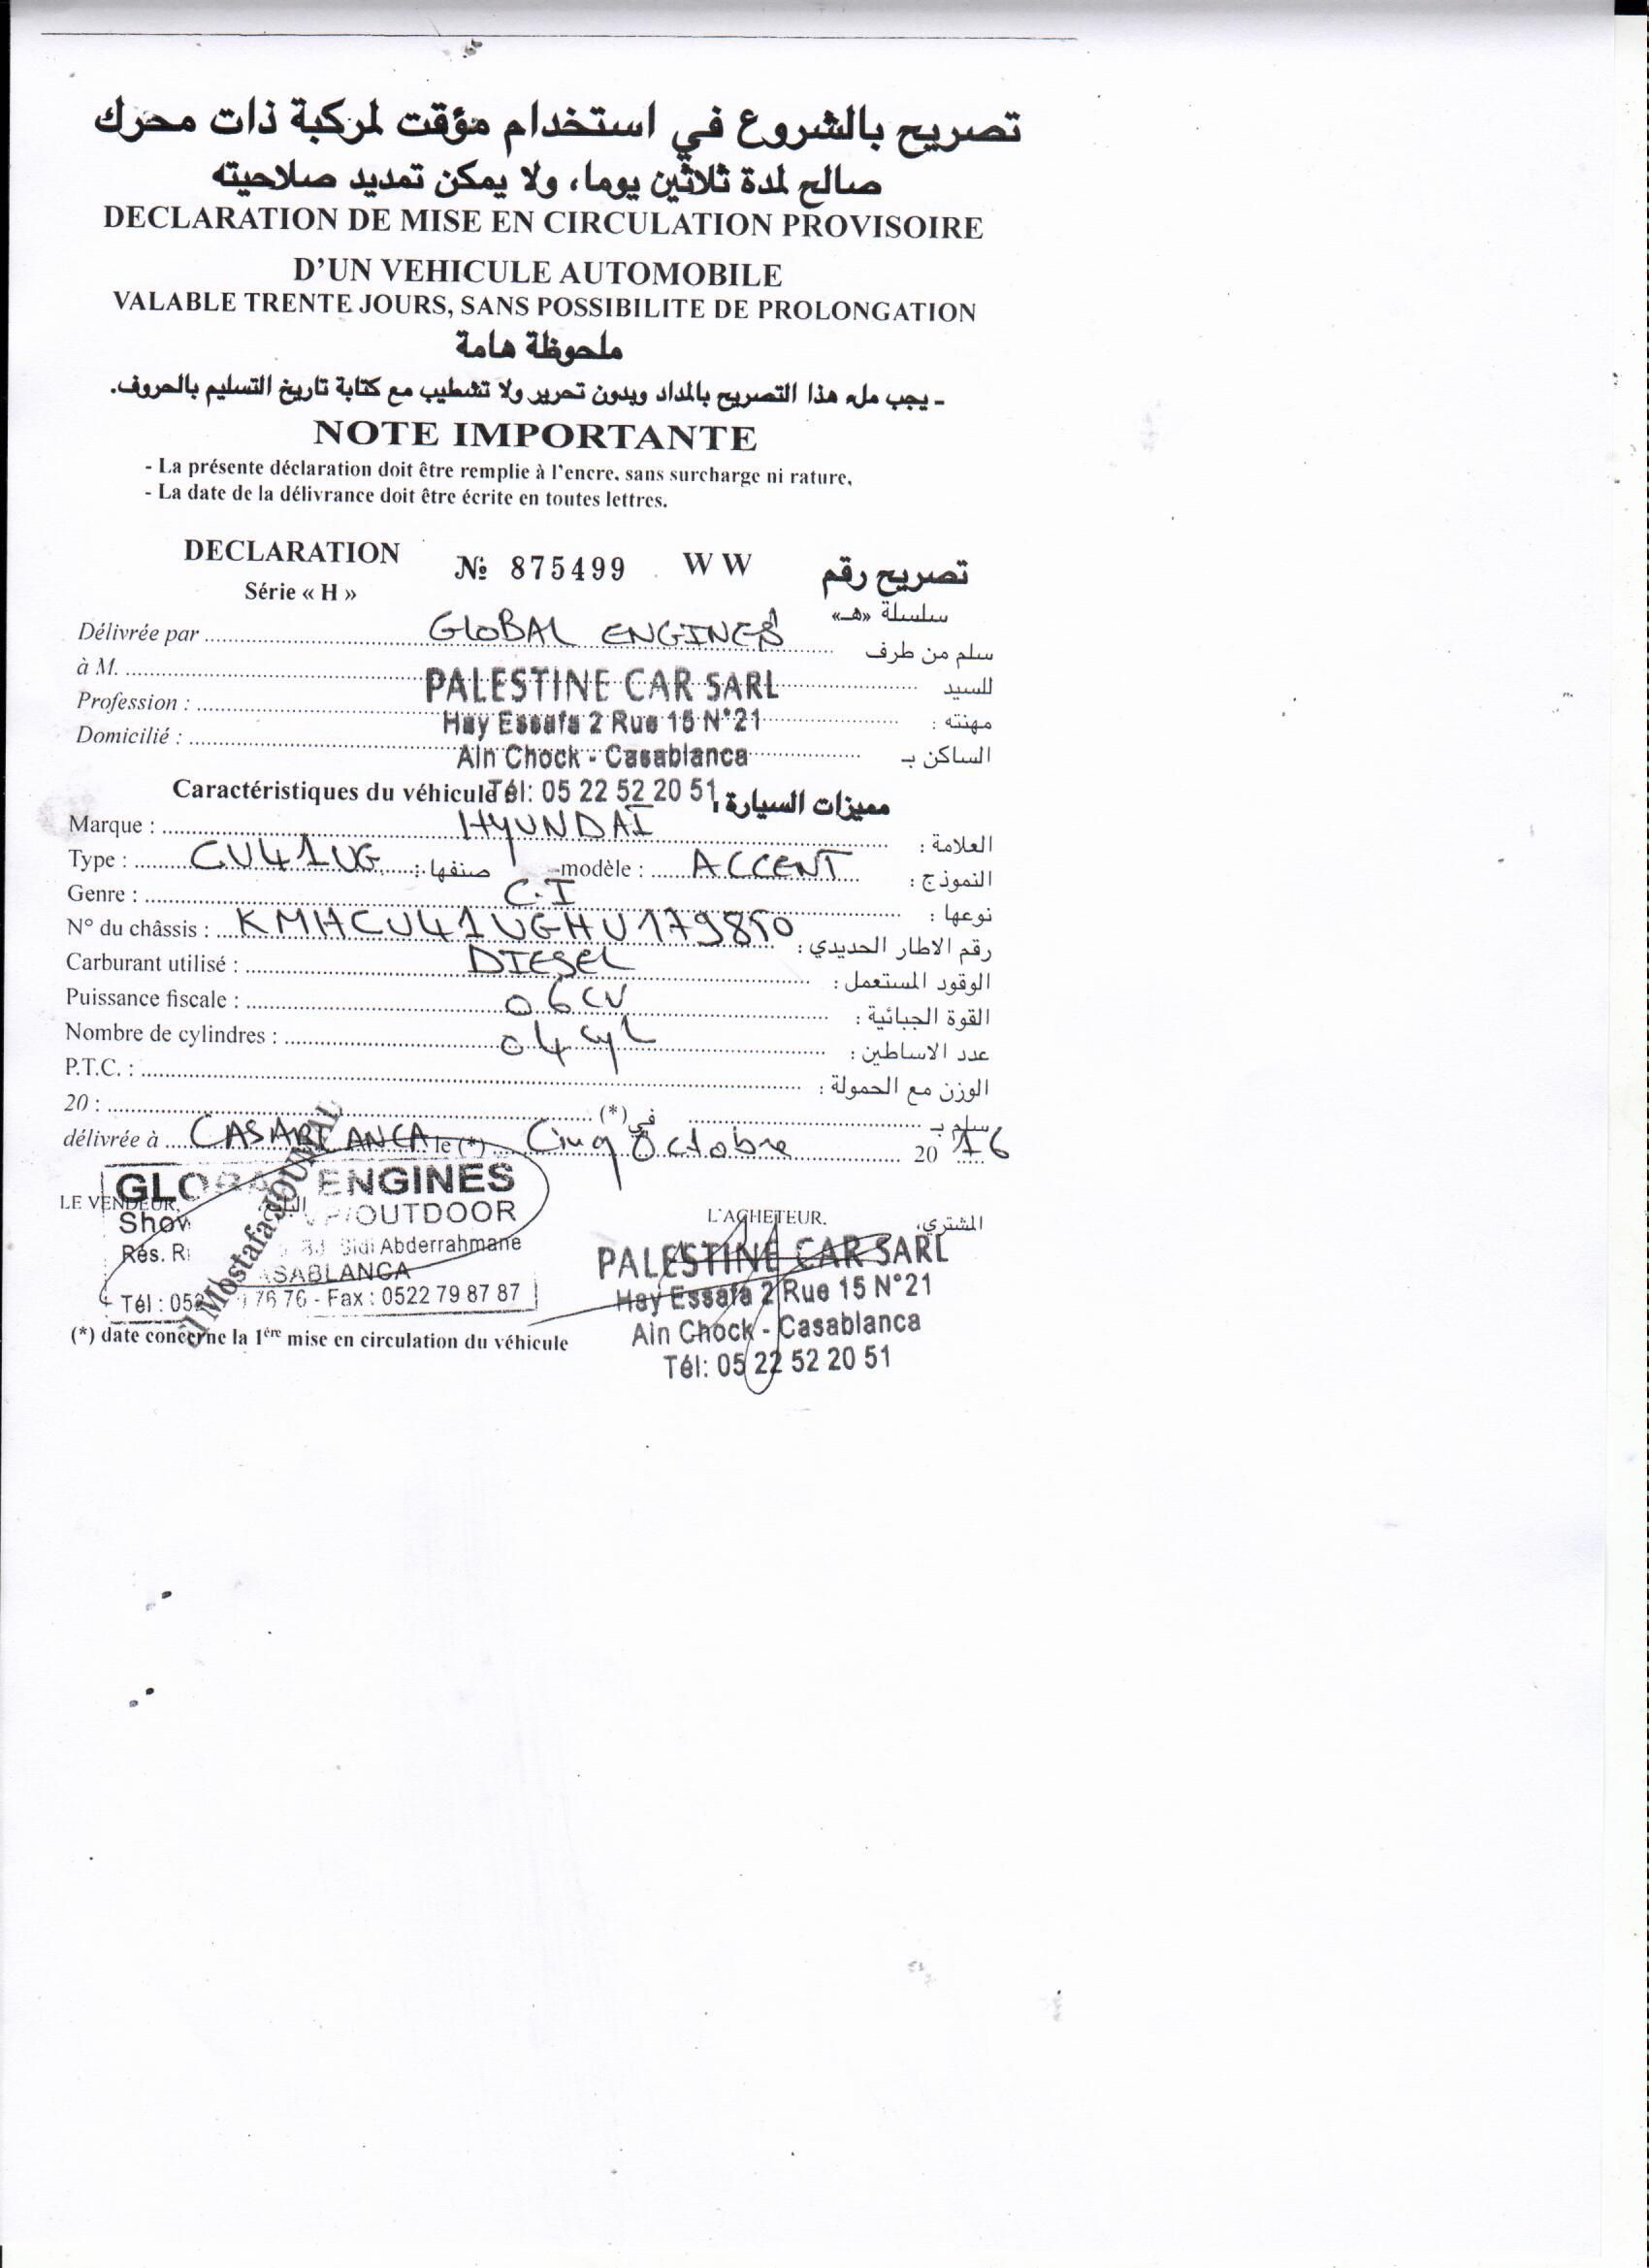 تصريح بالشروع في استخدام مؤقت لمركبة ذات محرك
صالح لمدة ثلاثين يوما، ولا يمكن تمديد صلاحيته
DECLARATION DE MISE EN CIRCULATION PROVISOIRE
D'UN VEHICULE AUTOMOBILE
VALABLE TRENTE JOURS, SANS POSSIBILITE DE PROLONGATION
ملحوظة هامة
- يجب ملء هذا التصريح بالمداد وبدون تحرير ولا تشطيب مع كتابة تاريخ التسليم بالحروف.
NOTE IMPORTANTE
- La présente déclaration doit être remplie à l'encre, sans surcharge ni rature,
- La date de la délivrance doit être écrite en toutes lettres.
DECLARATION № 875499 WW تصريح رقم
Série « H » سلسلة «هـ»
Délivrée par GLOBAL ENGINES سلم من طرف
à M. PALESTINE CAR SARL للسيد
Profession : Hay Essafa 2 Rue 15 N°21 مهنته :
Domicilié : Ain Chock - Casablanca الساكن بـ
Caractéristiques du véhicule Tél: 05 22 52 20 51 مميزات السيارة :
Marque : HYUNDAI العلامة :
Type : CU41UG صنفها : modèle : ACCENT النموذج :
Genre : C.I نوعها :
N° du châssis : KMHCU41UGHU179850 رقم الاطار الحديدي :
Carburant utilisé : DIESEL الوقود المستعمل :
Puissance fiscale : 06 CV القوة الجبائية :
Nombre de cylindres : 04 cyl عدد الاساطين :
P.T.C. : الوزن مع الحمولة :
20 : (*) في سلم بـ
délivrée à CASABLANCA le (*) Cinq Octobre 20 16
GLOBAL ENGINES
LE VENDEUR,
OUTDOOR
Rés. Sidi Abderrahmane
CASABLANCA
Tél : 76 76 - Fax : 0522 79 87 87
Mostafa
L'ACHETEUR. المشتري،
PALESTINE CAR SARL
Hay Essafa 2 Rue 15 N°21
Ain Chock - Casablanca
Tél: 05 22 52 20 51
(*) date concerne la 1ère mise en circulation du véhicule